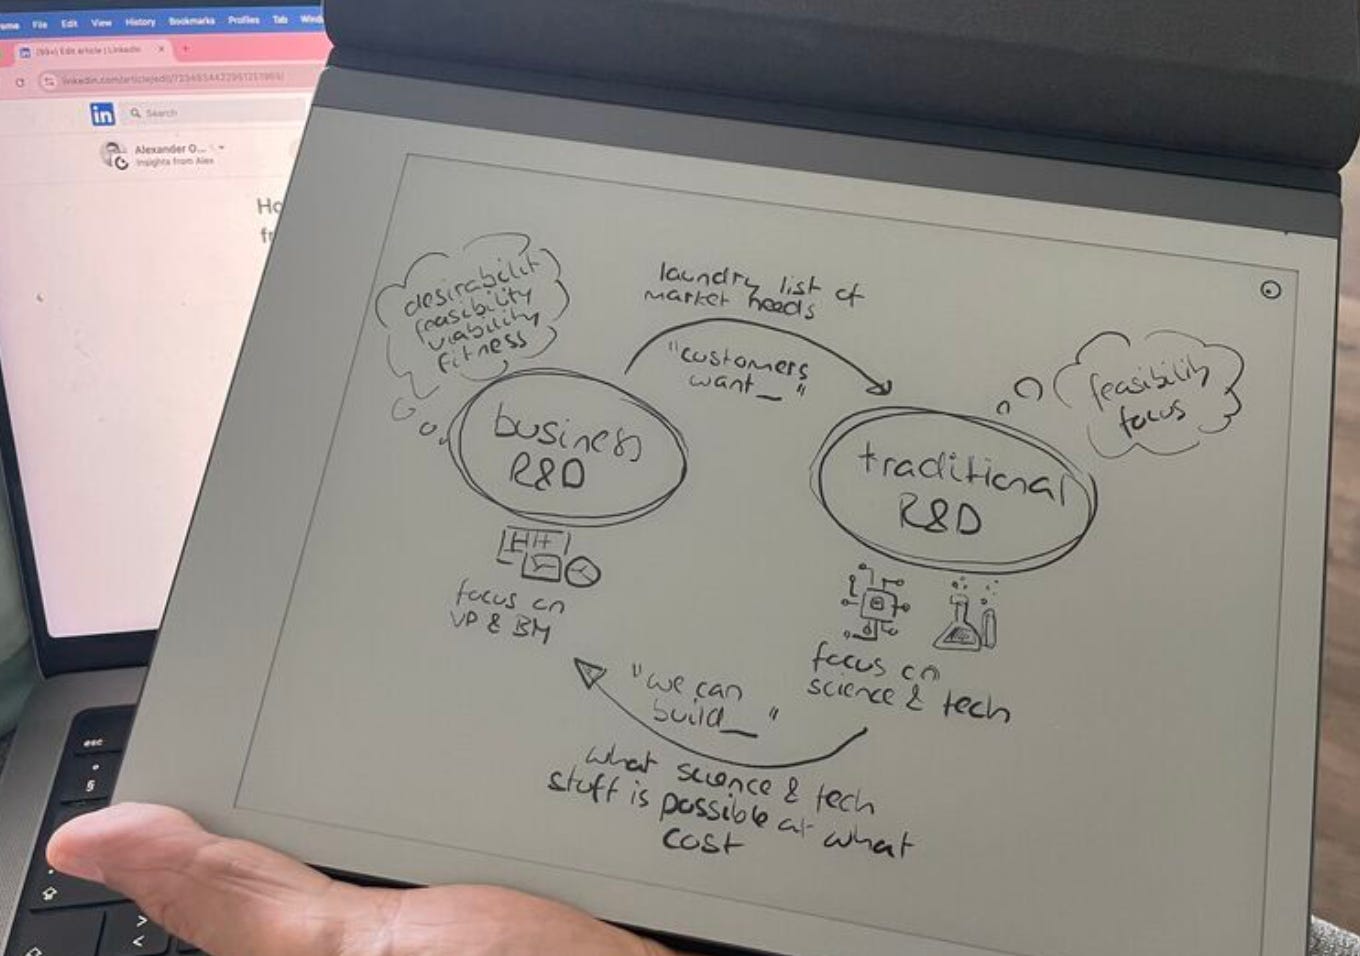 File Edit View History Bookmarks Profiles Tab
Edit article | LinkedIn
in
Search
Alexander O...
Insights from Alex
Ho
desirabilit
feasibility
viability
fitness
laundry list of
market needs
"customers
want_"
feasibility
focus
business
R&D
traditional
R&D
focus on
VP & BM
focus on
science & tech
"we can
build_"
what science & tech
stuff is possible at what
cost
esc
§
>
<